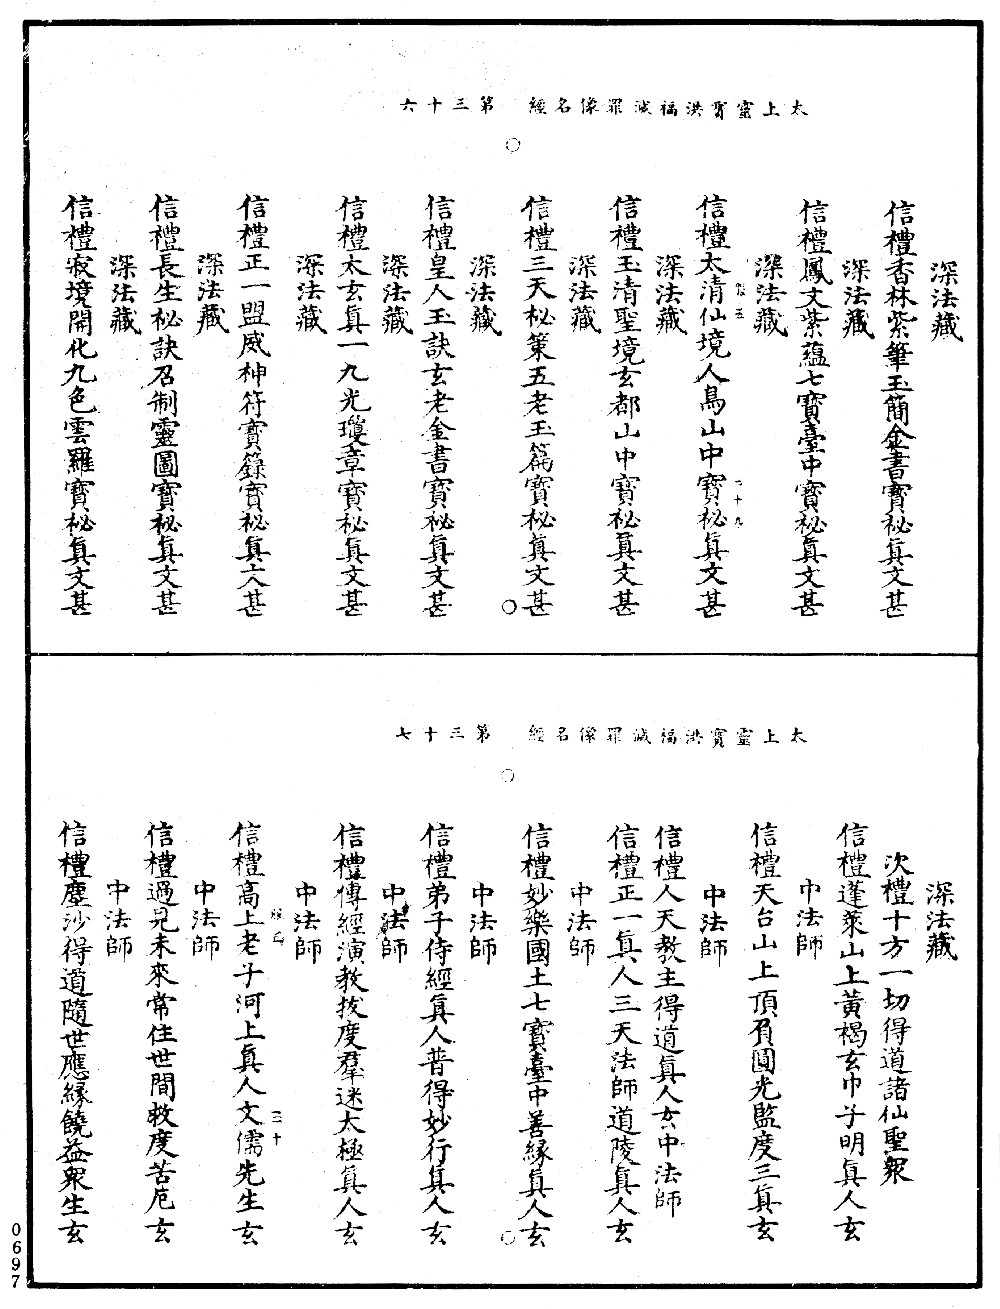 太上靈寶洪福滅罪像名經　第三十六
深法藏
信禮香林紫筆玉簡金書寶秘真文甚
深法藏
信禮鳳文紫蘊七寶臺中寶秘真文甚
深法藏
信禮太清仙境人鳥山中寶秘真文甚
深法藏
信禮玉清聖境玄都山中寶秘真文甚
深法藏
信禮三天秘策五老玉篇寶秘真文甚
深法藏
信禮皇人玉訣玄老金書寶秘真文甚
深法藏
信禮太玄真一九光瓊章寶秘真文甚
深法藏
信禮正一盟威神符寶籙寶秘真文甚
深法藏
信禮長生秘訣召制靈圖寶秘真文甚
深法藏
信禮寂境開化九色雲羅寶秘真文甚
太上靈寶洪福滅罪像名經　第三十七
深法藏
次禮十方一切得道諸仙聖眾
信禮蓬萊山上黃褐玄巾子明真人玄
中法師
信禮天台山上頂負圓光監度三真玄
中法師
信禮人天教主得道真人玄中法師
信禮正一真人三天法師道陵真人玄
中法師
信禮妙樂國土七寶臺中善緣真人玄
中法師
信禮弟子侍經真人普得妙行真人玄
中法師
信禮傳經演教拔度羣迷太極真人玄
中法師
信禮高上老子河上真人文儒先生玄
中法師
信禮過見未來常住世間救度苦厄玄
中法師
信禮塵沙得道隨世應緣饒益眾生玄
0697